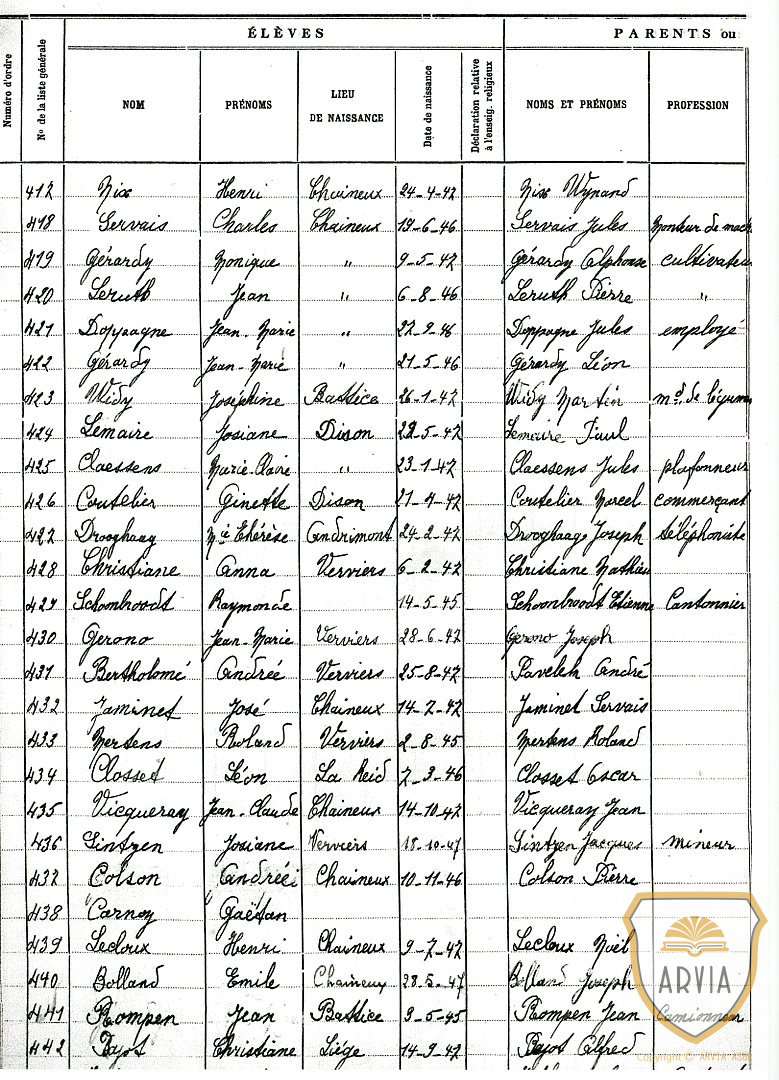 ÉLÈVES PARENTS ou
Numéro d'ordre N° de la liste générale NOM PRÉNOMS LIEU DE NAISSANCE Date de naissance Déclaration relative à l'enseig. religieux NOMS ET PRÉNOMS PROFESSION
417 Nix Henri Chaineux 24-4-47 Nix Wynand
418 Servais Charles Chaineux 19-6-46 Servais Jules Monteur de mach
419 Gérardy Monique " 9-5-47 Gérardy Alphonse cultivateu
420 Leruth Jean " 6-8-46 Leruth Pierre "
421 Doppagne Jean-Marie " 22-9-46 Doppagne Jules employé
422 Gérardy Jean-Marie " 21-5-46 Gérardy Léon
423 Widy Joséphine Battice 26-1-47 Widy Martin md de légumes
424 Lemaire Josiane Dison 28-5-47 Lemaire Paul
425 Claessens Marie-Claire " 23-1-47 Claessens Jules plafonneur
426 Coutelier Ginette Dison 21-4-47 Coutelier Marcel commerçant
427 Drooghaag Mie Thérèse Andrimont 24-2-47 Drooghaag Joseph téléphoniste
428 Christiane Anna Verviers 6-2-47 Christiane Mathieu
429 Schoonbroodt Raymonde 14-5-45 Schoonbroodt Etienne Cantonnier
430 Gerono Jean-Marie Verviers 28-6-47 Gerono Joseph
431 Bertholomé Andrée Verviers 25-8-47 André
432 Jaminet José Chaineux 14-7-47 Jaminet Servais
433 Mertens Roland Verviers 2-8-45 Mertens Roland
434 Closset Léon La Reid 7-3-46 Closset Oscar
435 Vicqueray Jean-Claude Chaineux 14-10-47 Vicqueray Jean
436 Sintzen Josiane Verviers 18-10-47 Sintzen Jacques mineur
437 Colson Andrée Chaineux 10-11-46 Colson Pierre
438 Carnoy Gaëtan
439 Lecloux Henri Chaineux 9-7-47 Lecloux Noël
440 Bolland Emile Chaineux 28-5-47 Bolland Joseph
441 Rompen Jean Battice 3-5-45 Rompen Jean Camionneur
442 Bajot Christiane Liége 14-9-47 Bajot Alfred
ARVIA
Copyright © ARVIA ASBL